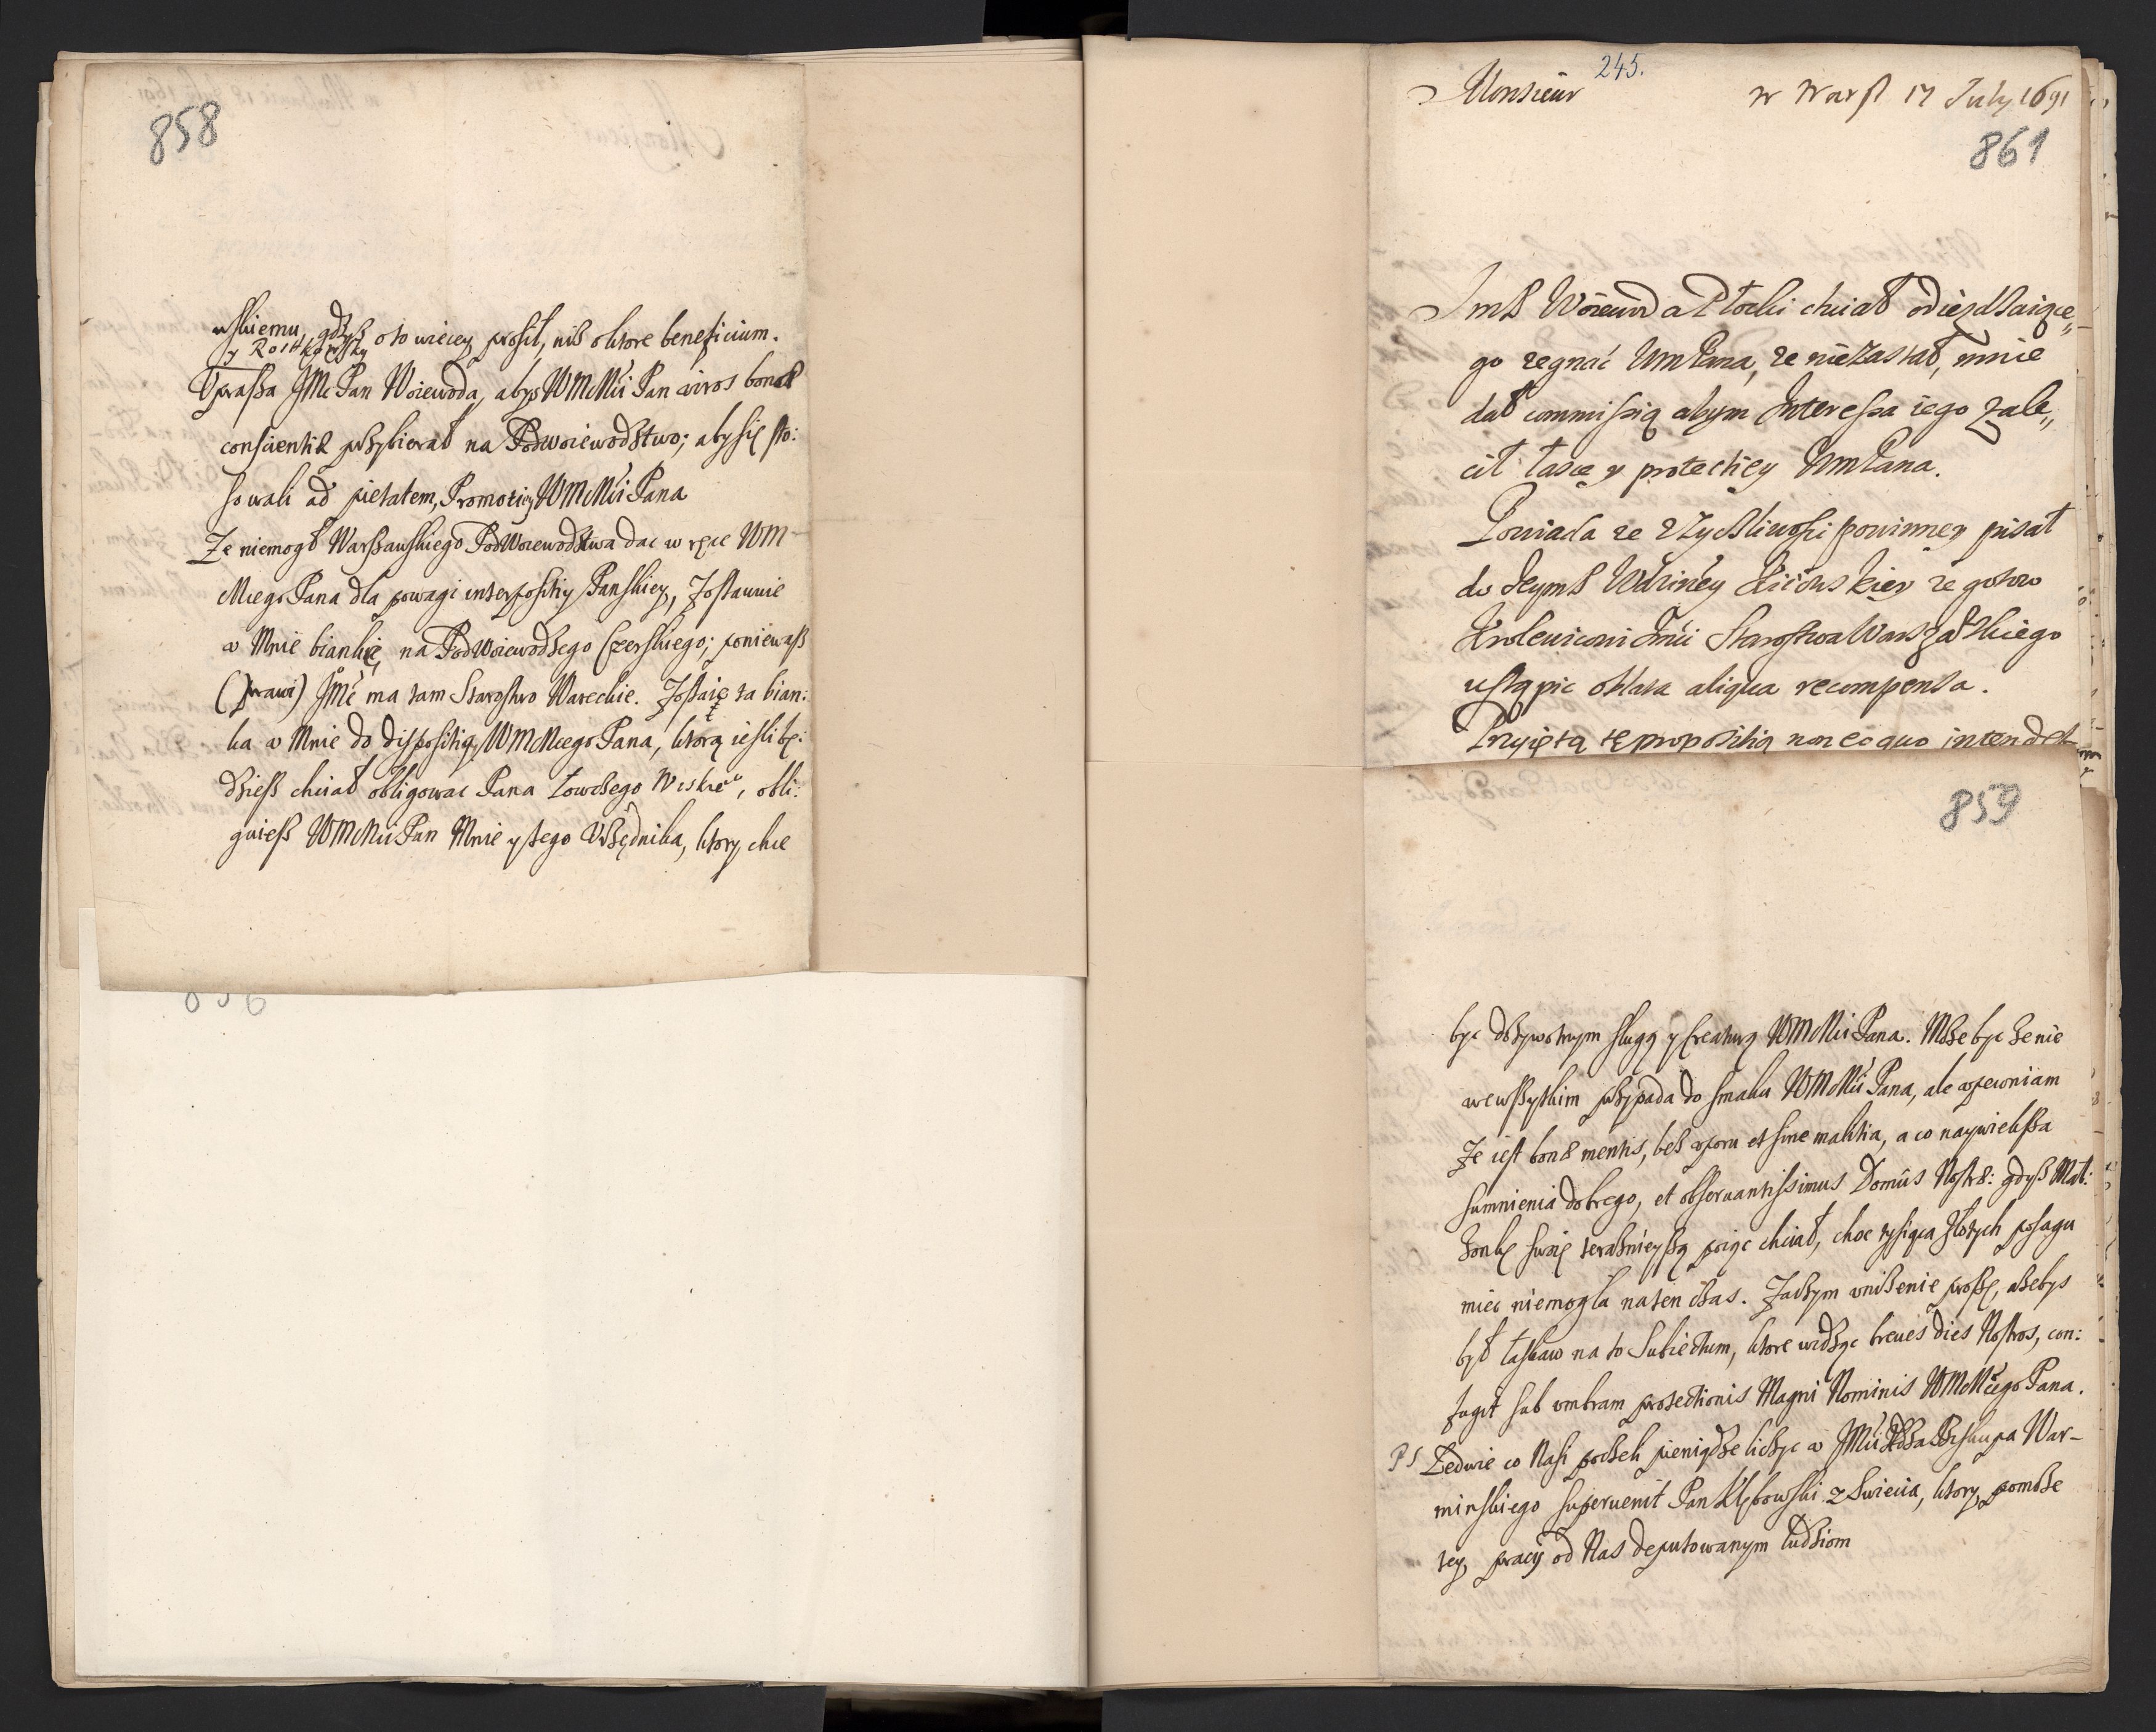 858
wskiemu, gdysz o to wiecey prosił, nisz oktore beneficium.
y Rostkowsky
Vprasza JMc Pan Woiewoda, abys WMMci Pan viros bonæ
conscientiæ przybierał na Podwoiewodztwo; aby się sto:
sowali ad pietatem, Promotiey WMMci Pana
Ze niemogł Warszawskiego PodWoiewodztwa dac w ręce WM
Mcego Pana dla powagi interpositiy Panskiey, Zostawuie
v Mnie biankię, na PodWoiewodzego Czerskiego; poniewasz
(prawi) JMć ma tam Starostwo Wareckie. Zostaię ta bian:
ka v Mnie do dispositiey WMMcego Pana, ktorą iesli bę:
dziesz chciał obligowac Pana Łowczego Wiskie°, obli:
guiesz WMMci Pan Mnie y tego Vrzędnika, ktory chce
856
245.
Monsieur w Warsz 17 July 1691
861
JmP Woiewoda Płocki chciał odiezdzaiące„
go zegnać WmPana, ze niezastał, mnie
dał commissią abym Interessa iego zale„
cił łasce y protectiey WmPana.
Powiada ze z Zyczliwosci powinney pisał
do Jeym Wdziney Kiiowskiey ze gotow
Krolewicowi Jmci Starostwa Warszawskiego
ustąpic oblata aliqua recompensa.
Przyięta tę propositią non eo quo intendet
859
byc dozywotnym sługą y Creaturą WMMci Pana. Może byc że nie
wewszytkim przypada do smaku WMMci Pana, ale vpewniam
Ze iest bonæ mentis, bez vporu et sine malitia, a co naywiększa
sumnienia dobrego, et obseruantissimus Domûs Nostræ: gdysz Mał:
żonkę swoię teraznieyszą poiąc chciał, choc tysiąca złotych posagu
miec niemogła naten czas. Zaczym vniżenie proszę, ażebys
był łaskaw na to Subiectum, ktore widząc breues dies Nostros, con:
fugit sub vmbram protectionis Magni Nominis WMMcego Pana.
PS Ledwie co Nasi poczeli pieniądze liczyc v JMci Xdza Biskupa War-
minskiego superuenit Pan Kłębowski z Swiecia, ktory pomoże
tey pracy od Nas deputowanym ludziom